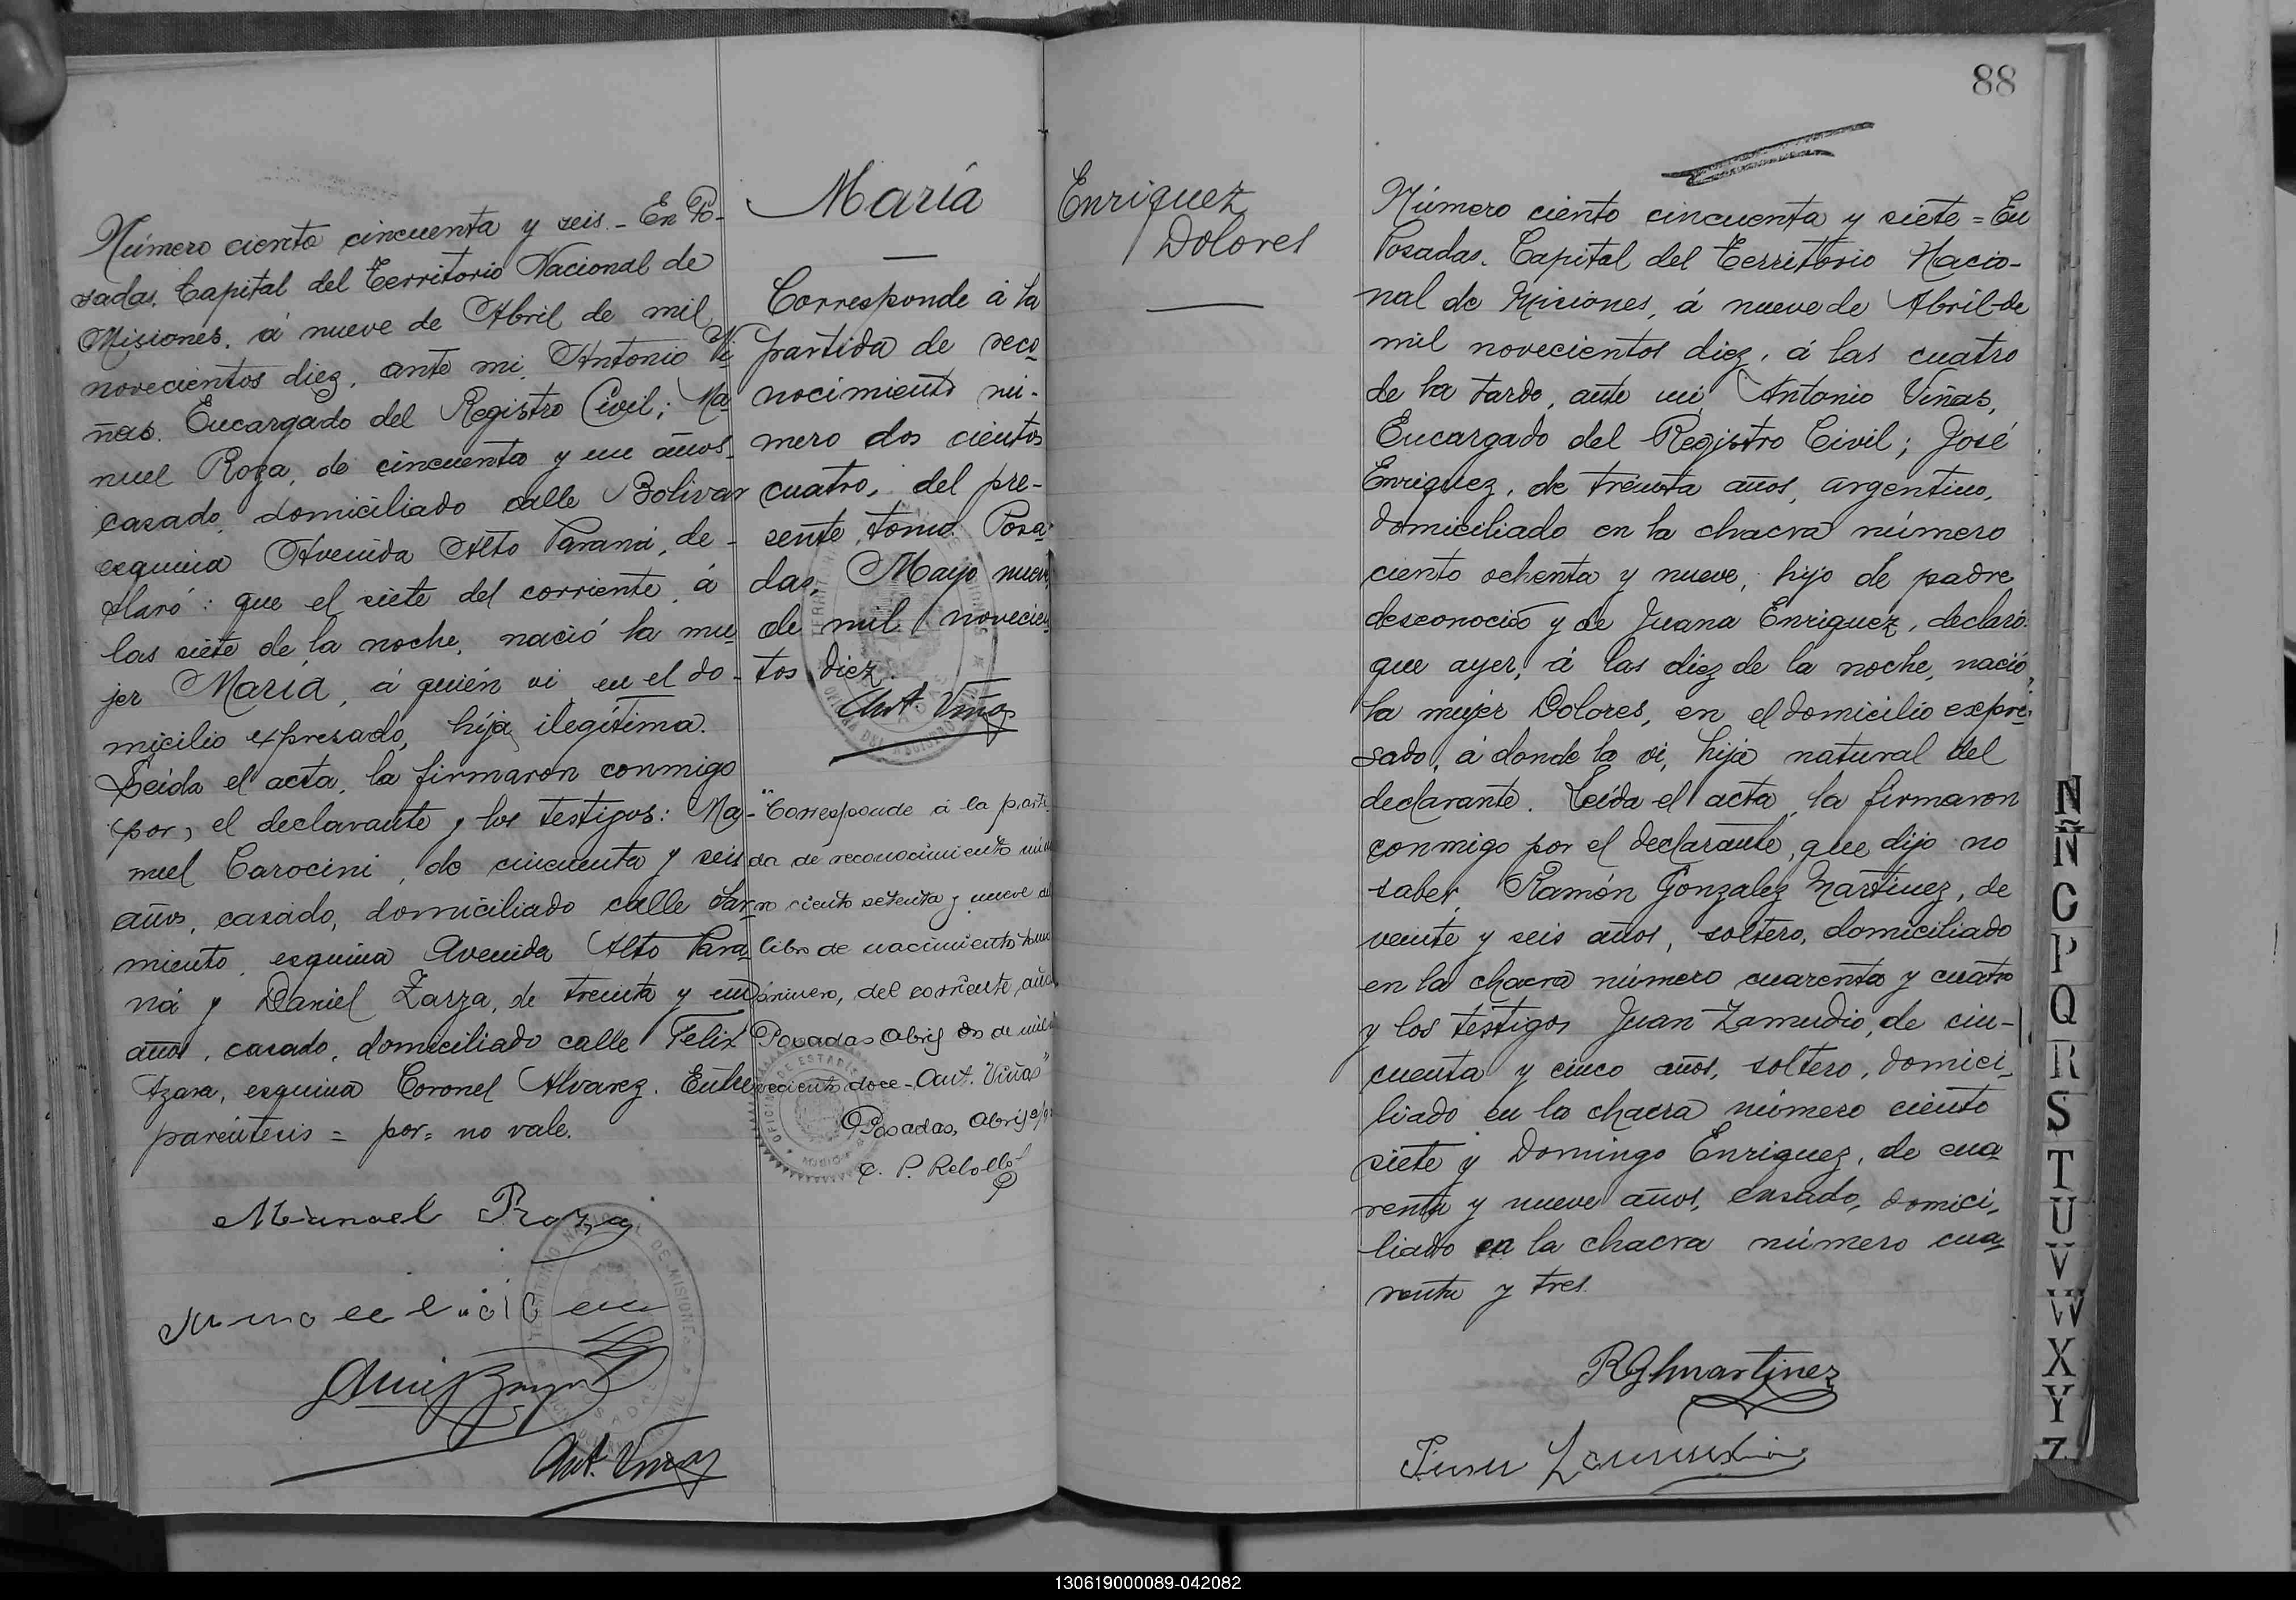 Número ciento cincuenta y seis. - En Po-
sadas, Capital del Territorio Nacional de
Misiones, á nueve de Abril de mil
novecientos diez, ante mi, Antonio Vi
ñas, Encargado del Registro Civil; Ma
nuel Roza, de cincuenta y un años
casado, domiciliado calle Bolivar
esquina Avenida Alto Paraná, de-
claró: que el siete del corriente, á
las siete de la noche, nació la mu
jer María, á quién vi en el do-
micilio expresado, hija ilegítima.
Leída el acta, la firmaron conmigo
(por) el declarante y los testigos: Ma-
nuel Carocini, de cincuenta y seis
años, casado, domiciliado calle Sar-
miento, esquina Avenida Alto Para-
ná y Daniel Zarza, de treinta y un
años, casado, domiciliado calle Felix
Azara, esquina Coronel Alvarez. Entre
paréntesis = por = no vale.
Manuel Roza
Ant. Viñas
María
Corresponde á la
partida de reco-
nocimiento nú-
mero dos cientos
cuatro, del pre-
sente tomo. Posa-
das, Mayo nueve
de mil novecien
tos diez.
Ant. Viñas
"Corresponde á la parti
da de reconocimiento núme
ro ciento setenta y nueve del
libro de nacimiento tomo
primero, del corriente año
Posadas Abril dos de mil
vecientos doce - Ant. Viñas"
Posadas, Abril
88
Enriquez
Dolores
Número ciento cincuenta y siete = En
Posadas, Capital del Territorio Nacio-
nal de Misiones, á nueve de Abril de
mil novecientos diez, á las cuatro
de la tarde, ante mi, Antonio Viñas,
Encargado del Registro Civil; José
Enriquez, de treinta años, argentino,
domiciliado en la chacra número
ciento ochenta y nueve, hijo de padre
desconocido y de Juana Enriquez, declaró:
que ayer, á las diez de la noche, nació
la mujer Dolores, en el domicilio expre-
sado, á donde la vi, hija natural del
declarante. Leída el acta, la firmaron
conmigo por el declarante, que dijo no
saber, Ramón Gonzalez Martinez, de
veinte y seis años, soltero, domiciliado
en la chacra número cuarenta y cuatro
y los testigos Juan Zamudio, de cin-
cuenta y cinco años, soltero, domici-
liado en la chacra número ciento
siete y Domingo Enriquez, de cua
renta y nueve años, casado, domici-
liado en la chacra número cua
renta y tres.
RGMartinez
Juan Zamudio
N
Ñ
P
Q
R
S
T
U
V
W
X
Y
Z
130619000089-042082